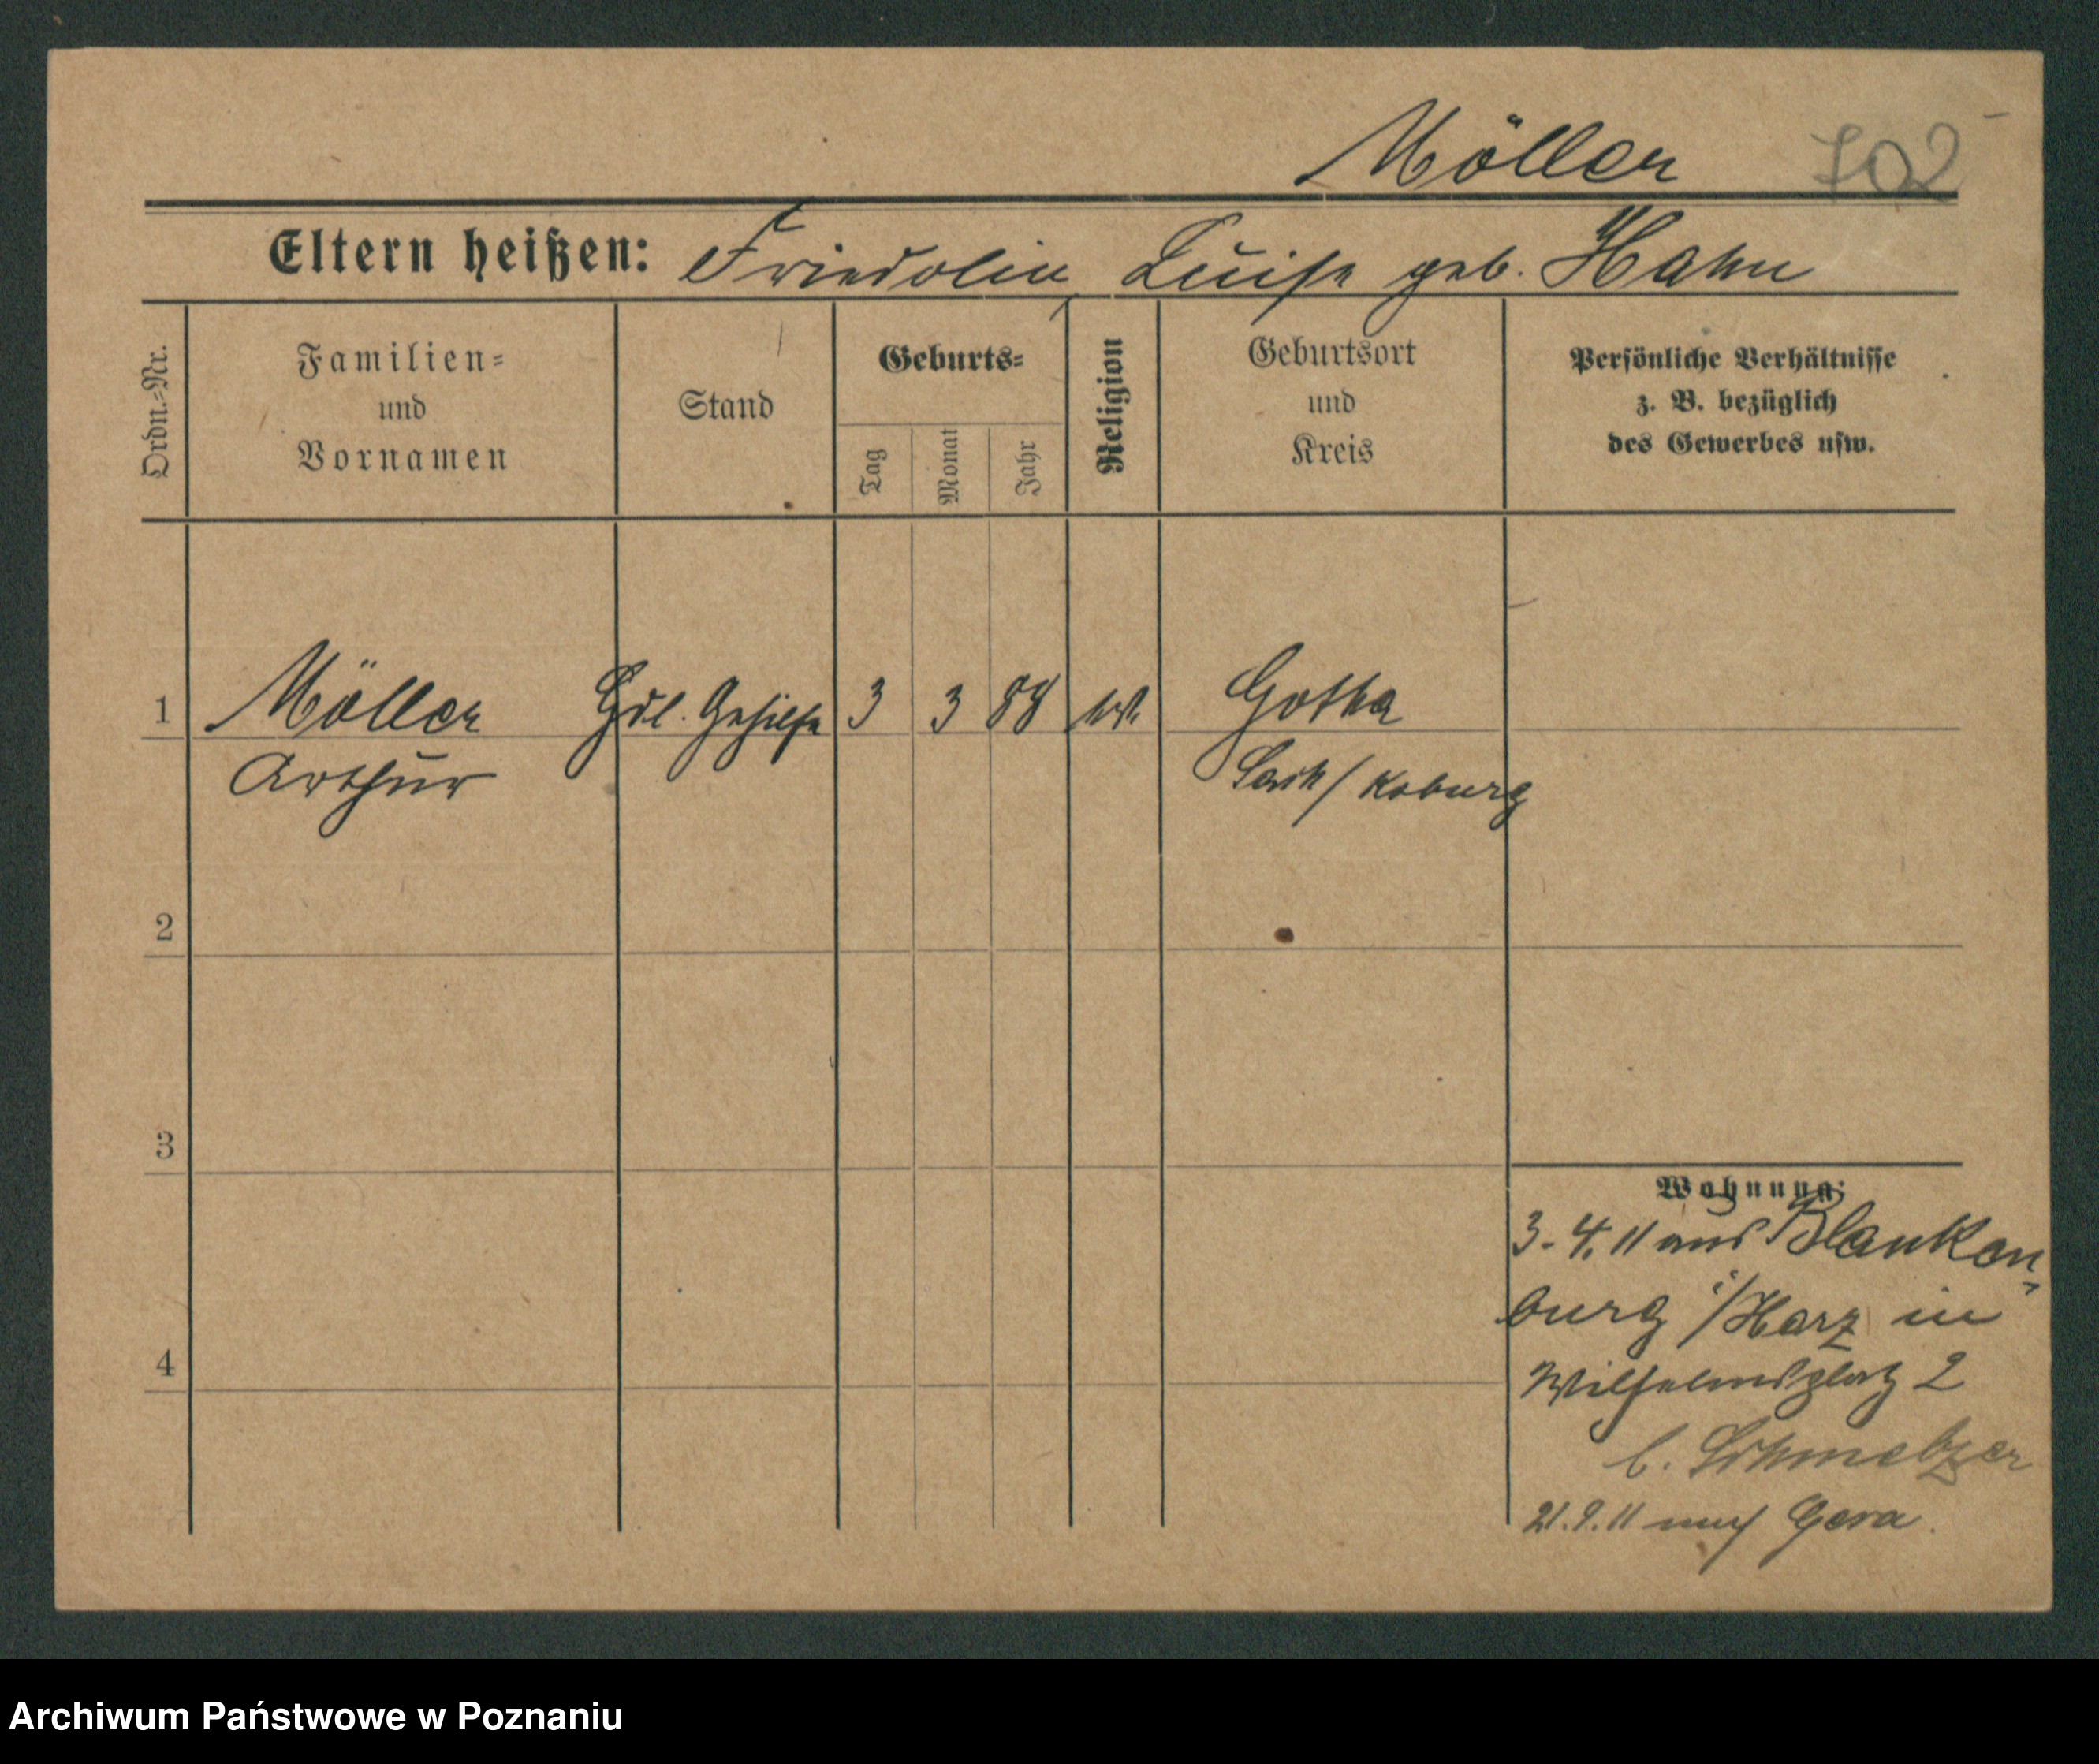 Möller 702
Eltern heißen: Friedolin, Luise geb. Hahn
Ordn.-Nr.
Familien-
und
Vornamen
Stand
Geburts-
Tag
Monat
Jahr
Religion
Geburtsort
und
Kreis
Persönliche Verhältnisse
z. B. bezüglich
des Gewerbes usw.
1 Möller Hdl. Gehilfe 3 3 88 ev. Gotha
Arthur Sach/Koburg
2
3
4
Wohnung:
3.4.11 aus Blanken-
burg i/Harz in
Wilhelmsplatz 2
b. Schmelzer
21.9.11 nach Gera.
Archiwum Państwowe w Poznaniu